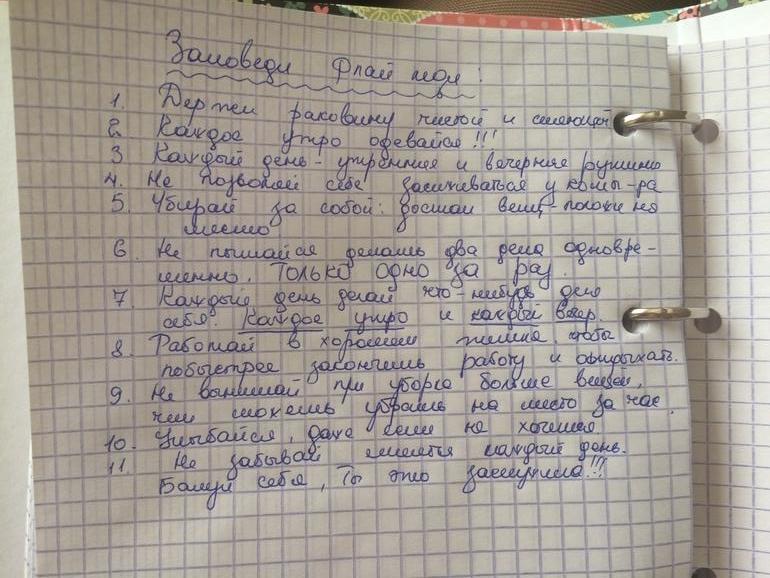 Заповеди Флай леди:
1. Держи раковину чистой и сияющей
2. Каждое утро одевайся!!!
3 Каждый день - утренняя и вечерняя рутина
4. Не позволяй себе засиживаться у компь-ра
5. Убирай за собой: достал вещь - положи на
место
6. Не пытайся делать два дела одновре-
менно. ТОЛЬКО ОДНО за раз.
7. Каждый день делай что-нибудь для
себя. Каждое утро и каждый вечер.
8. Работай в хорошем темпе, чтобы
побыстрее закончить работу и отдыхать.
9. Не вынимай при уборке больше вещей,
чем можешь убрать на место за час.
10. Улыбайся, даже если не хочется
11. Не забывай смеяться каждый день.
Балуй себя, Ты это заслужила!!!